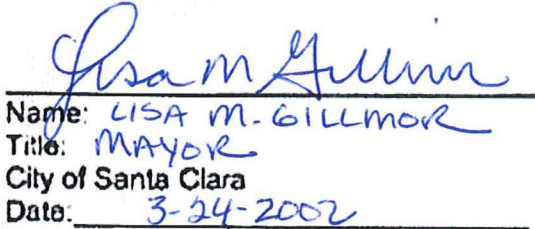 Lisa M Gillmor
Name: LISA M. GILLMOR
Title: MAYOR
City of Santa Clara
Date: 3-24-2002